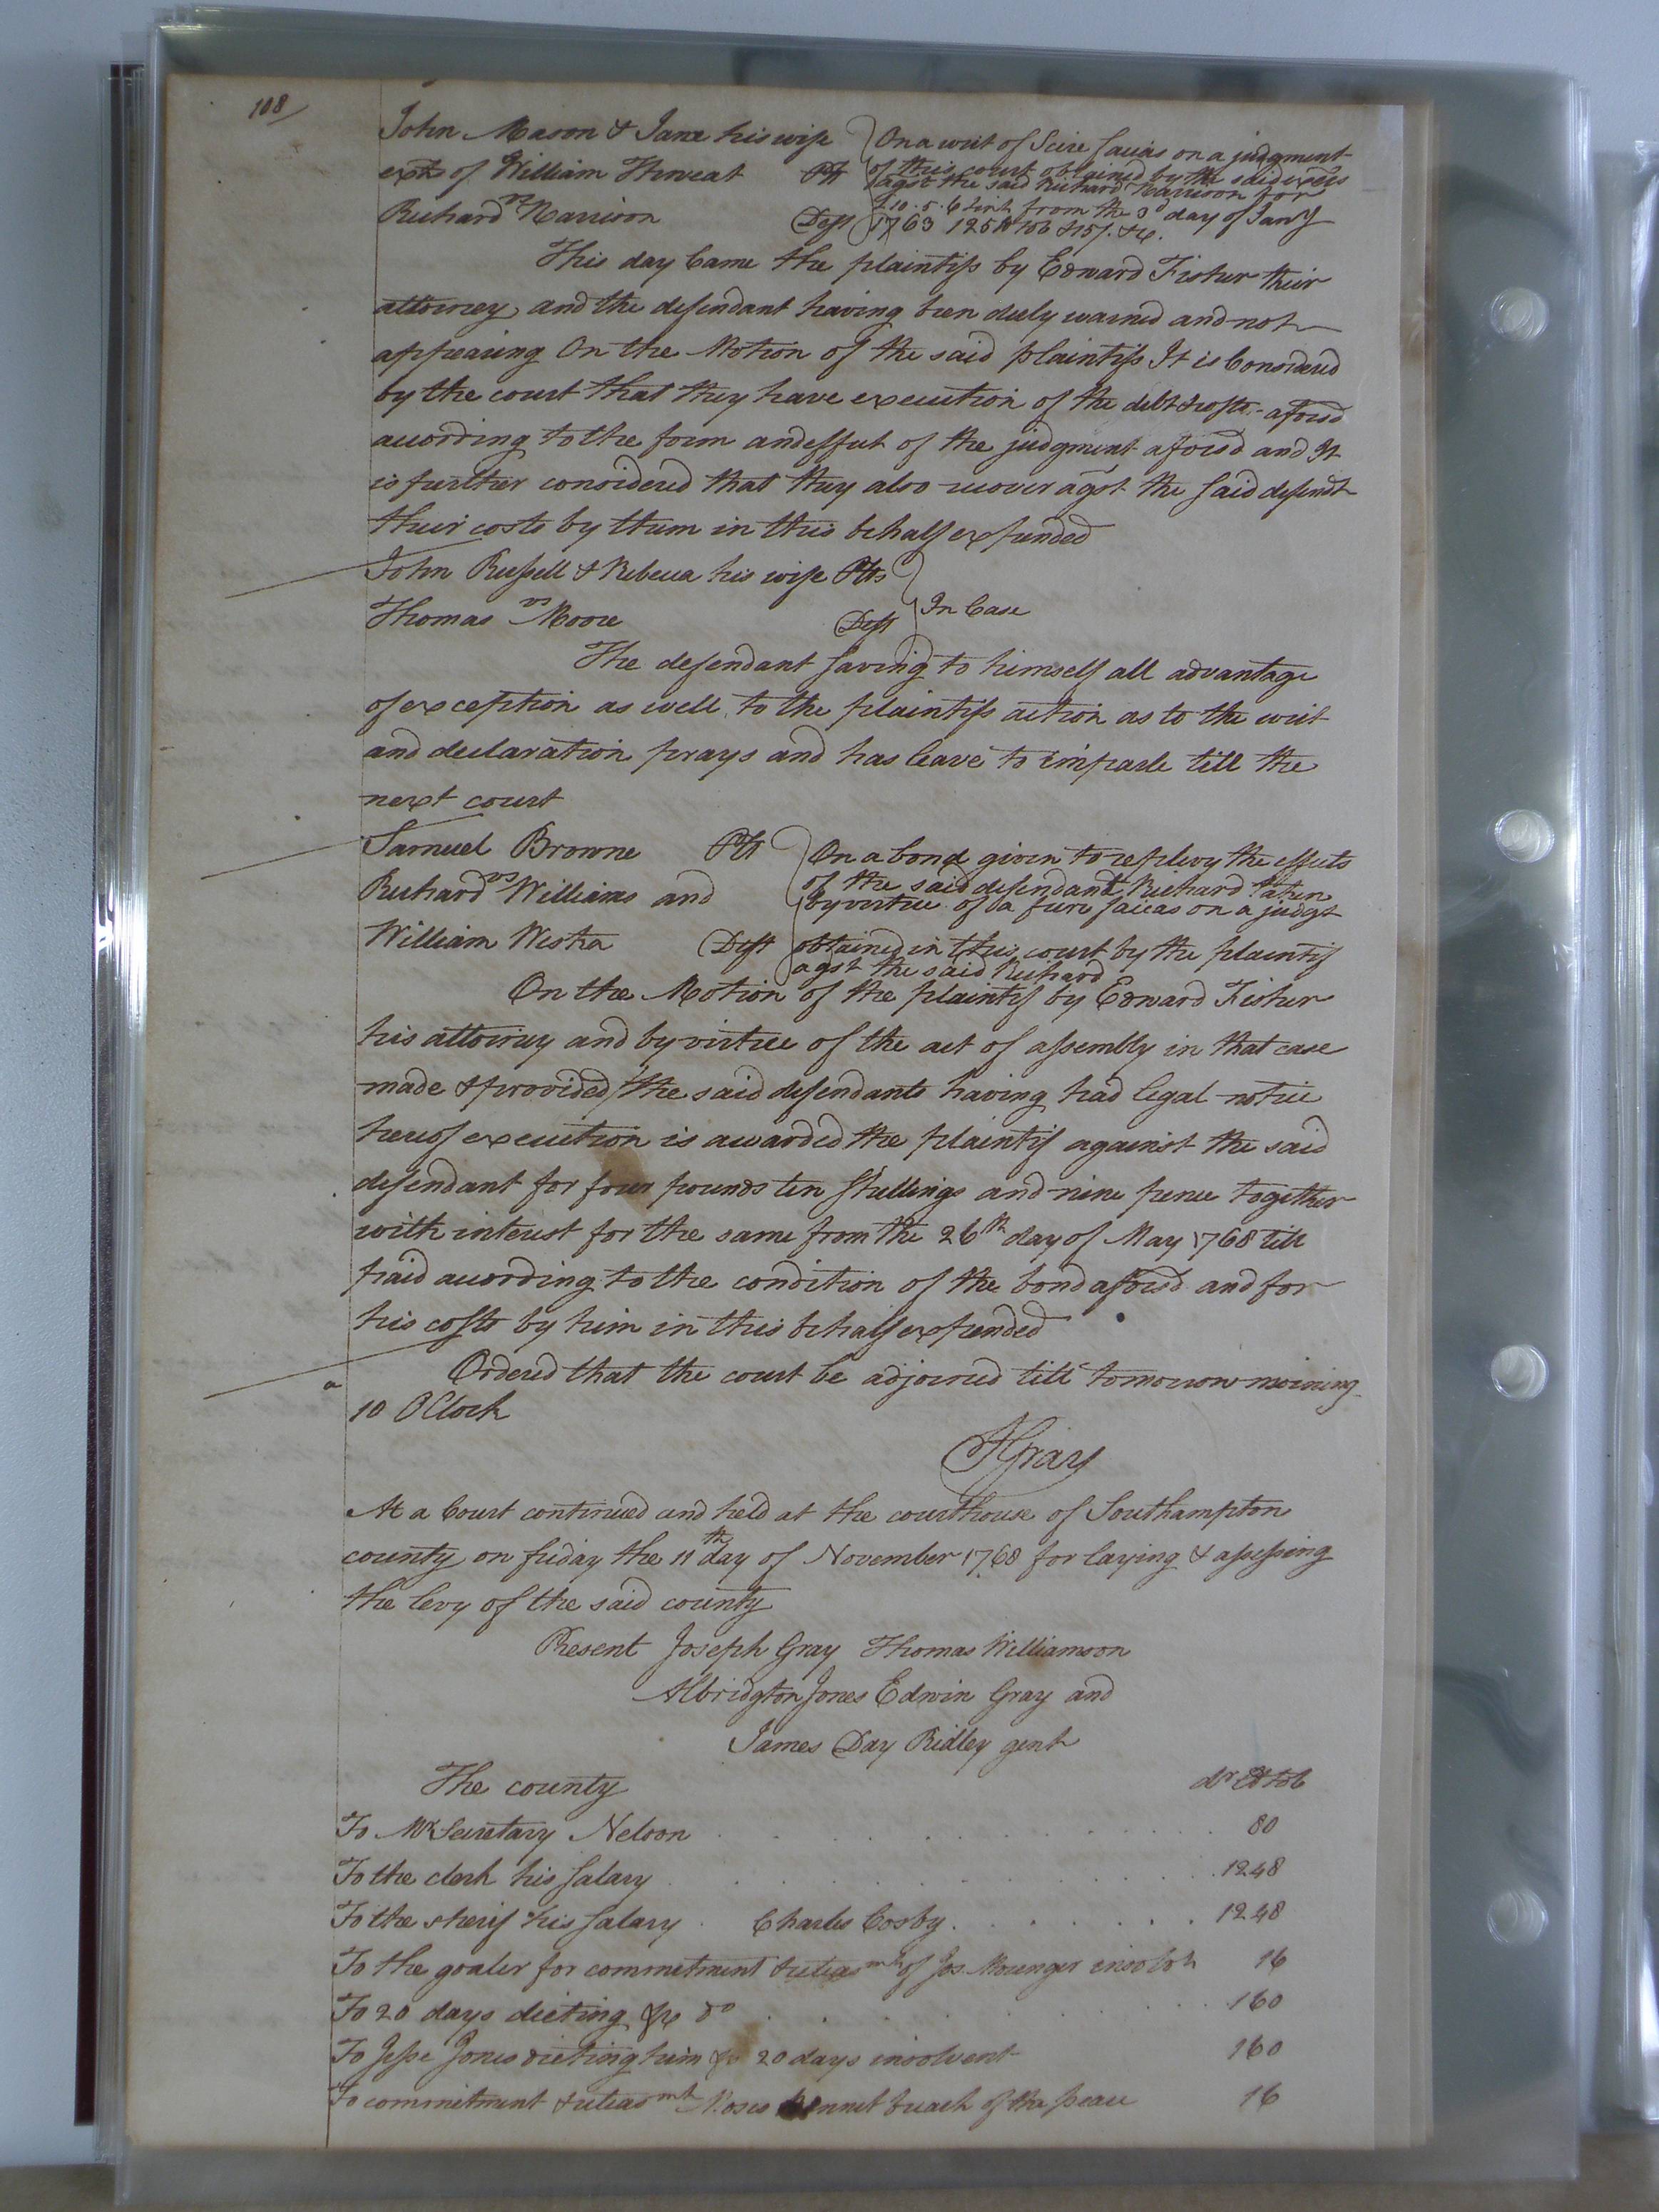 108
John Mason & Jane his wife
exrs of William Threeat Plt
vs
Richard Harrison Deft
On a writ of Scire facias on a judgment
of this court obtained by the said exrs
agst the said Richard Harrison for
£10.5.6 & int from the 3d day of Jany
1763 125 lb tob & 15/. &c.
This day Came the plaintifs by Edward Fisher their
attorney and the defendant having been duly warned and not
appearing On the Motion of the said plaintifs It is Considered
by the court that they have execution of the debt & costs aforsd
according to the form and effect of the judgment aforsd and It
is further considered that they also recover agst the said defendt
their costs by them in this behalf expended
John Russell & Rebecca his wife Plts
vs
Thomas Moore Deft
In Case
The defendant saving to himself all advantage
of exception as well to the plaintifs action as to the writ
and declaration prays and has leave to imparle till the
next court
Samuel Browne Plt
vs
Richard Williams and
William Westra Deft
On a bond given to replevy the effects
of the said defendant Richard taken
by virtue of a fieri facias on a judgt
obtained in this court by the plaintif
agst the said Richard
On the Motion of the plaintif by Edward Fisher
his attorney and by virtue of the act of assembly in that case
made & provided the said defendants having had legal notice
hereof execution is awarded the plaintif against the said
defendant for four pounds ten shillings and nine pence together
with interest for the same from the 26th day of May 1768 till
paid according to the condition of the bond aforsd and for
his costs by him in this behalf expended
Ordered that the court be adjorned till tomorrow morning
10 OClock
JGray
At a Court continued and held at the courthouse of Southampton
county on friday the 11th day of November 1768 for laying & assessing
the levy of the said county
Present Joseph Gray Thomas Williamson
Albridgton Jones Edwin Gray and
James Day Ridley gent
The county dr lb tob
To Mr Secretary Nelson 80
To the clerk his salary 1248
To the sherif his salary Charles Cosby 1248
To the goaler for commitment & releasmt of Jos. Mounger insolvt 16
To 20 days dieting &c do 160
To Jesse Jones dieting him &c 20 days insolvent 160
To commitment & releasmt Moses Bennet breach of the peace 16